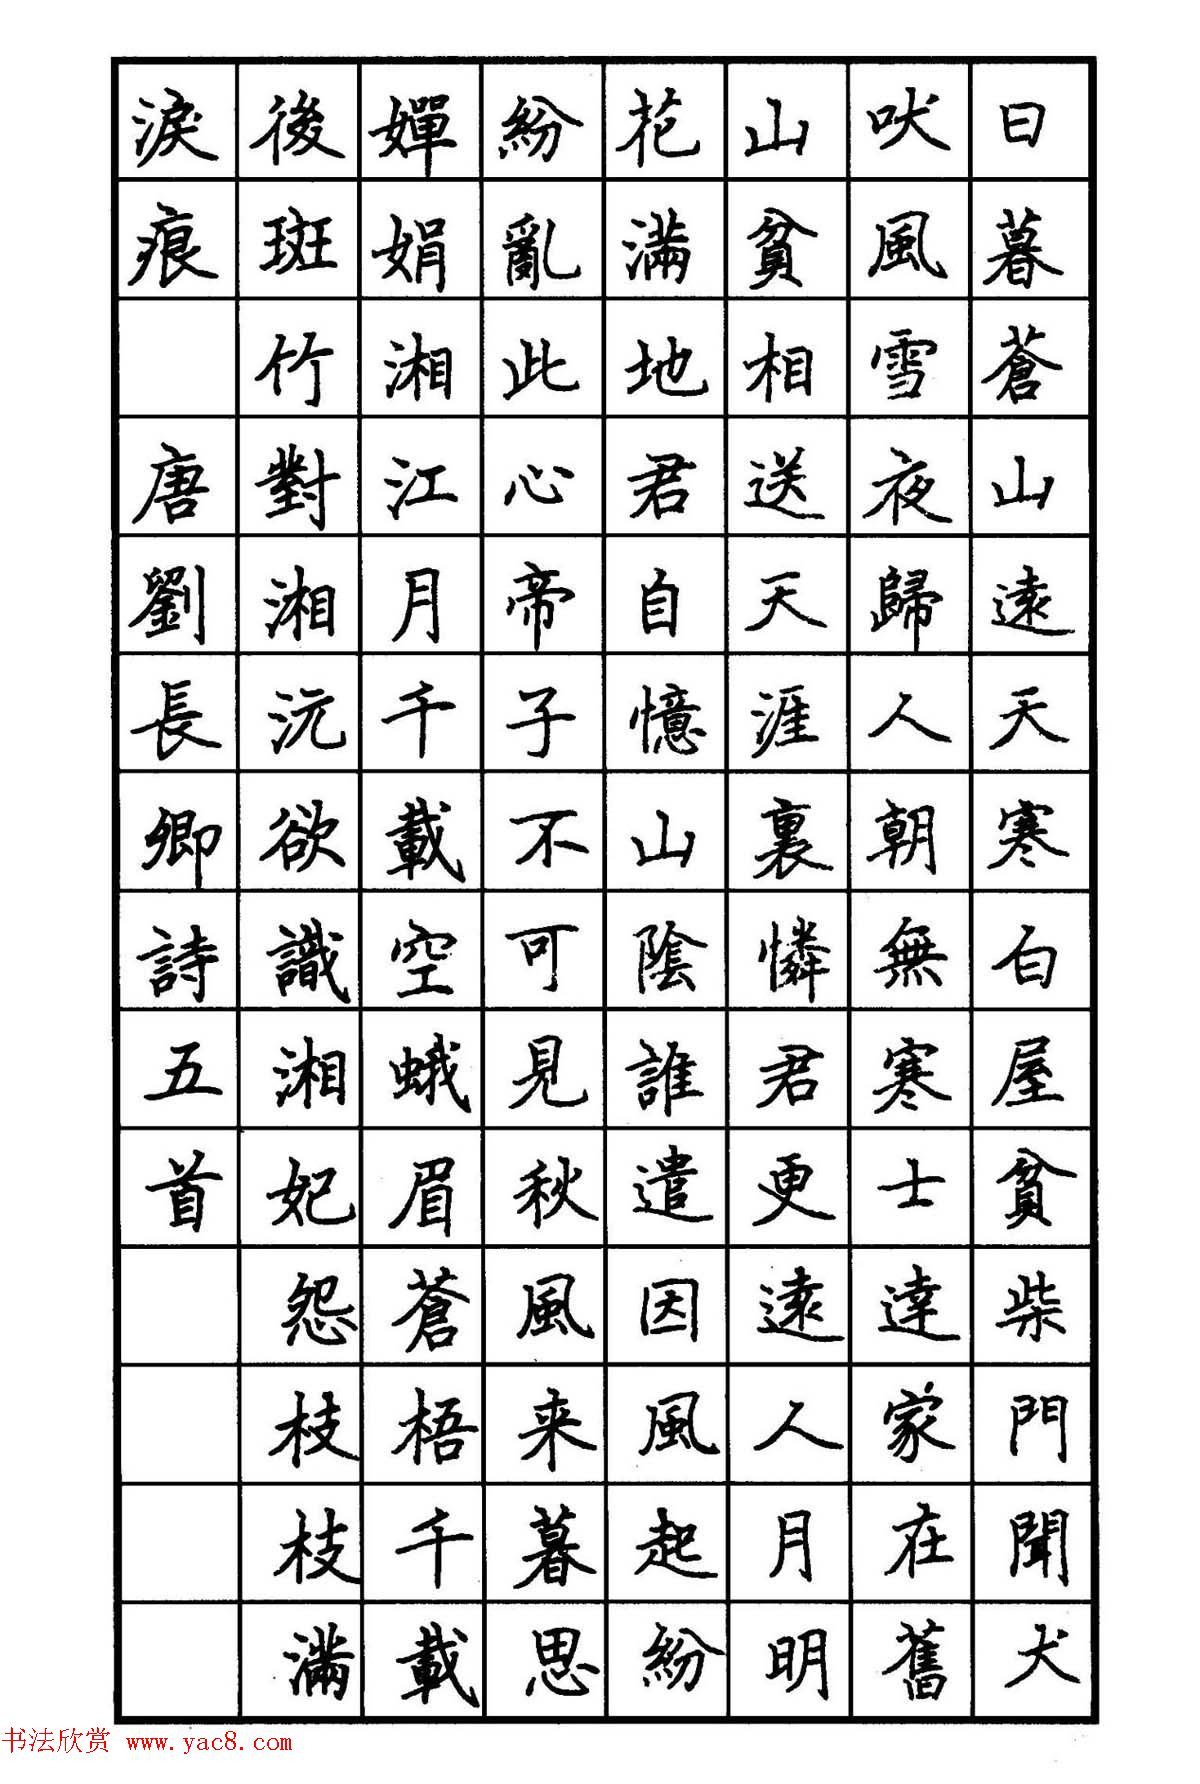 日暮蒼山遠天寒白屋貧柴門聞犬
吠風雪夜歸人朝無寒士達家在舊
山貧相送天涯裏憐君更遠人月明
花滿地君自憶山陰誰遣因風起紛
紛亂此心帝子不可見秋風来暮思
嬋娟湘江月千載空蛾眉蒼梧千載
後斑竹對湘沅欲識湘妃怨枝枝滿
淚痕 唐劉長卿詩五首
书法欣赏 www.yac8.com